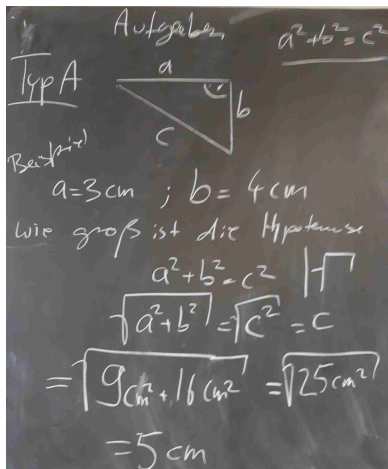 Aufgaben
a²+b²=c²
Typ A
a
b
c
Beispiel
a=3cm ; b=4cm
wie groß ist die Hypotenuse
a²+b²=c² |√
√a²+b² = √c² = c
= √9cm²+16cm² = √25cm²
=5cm